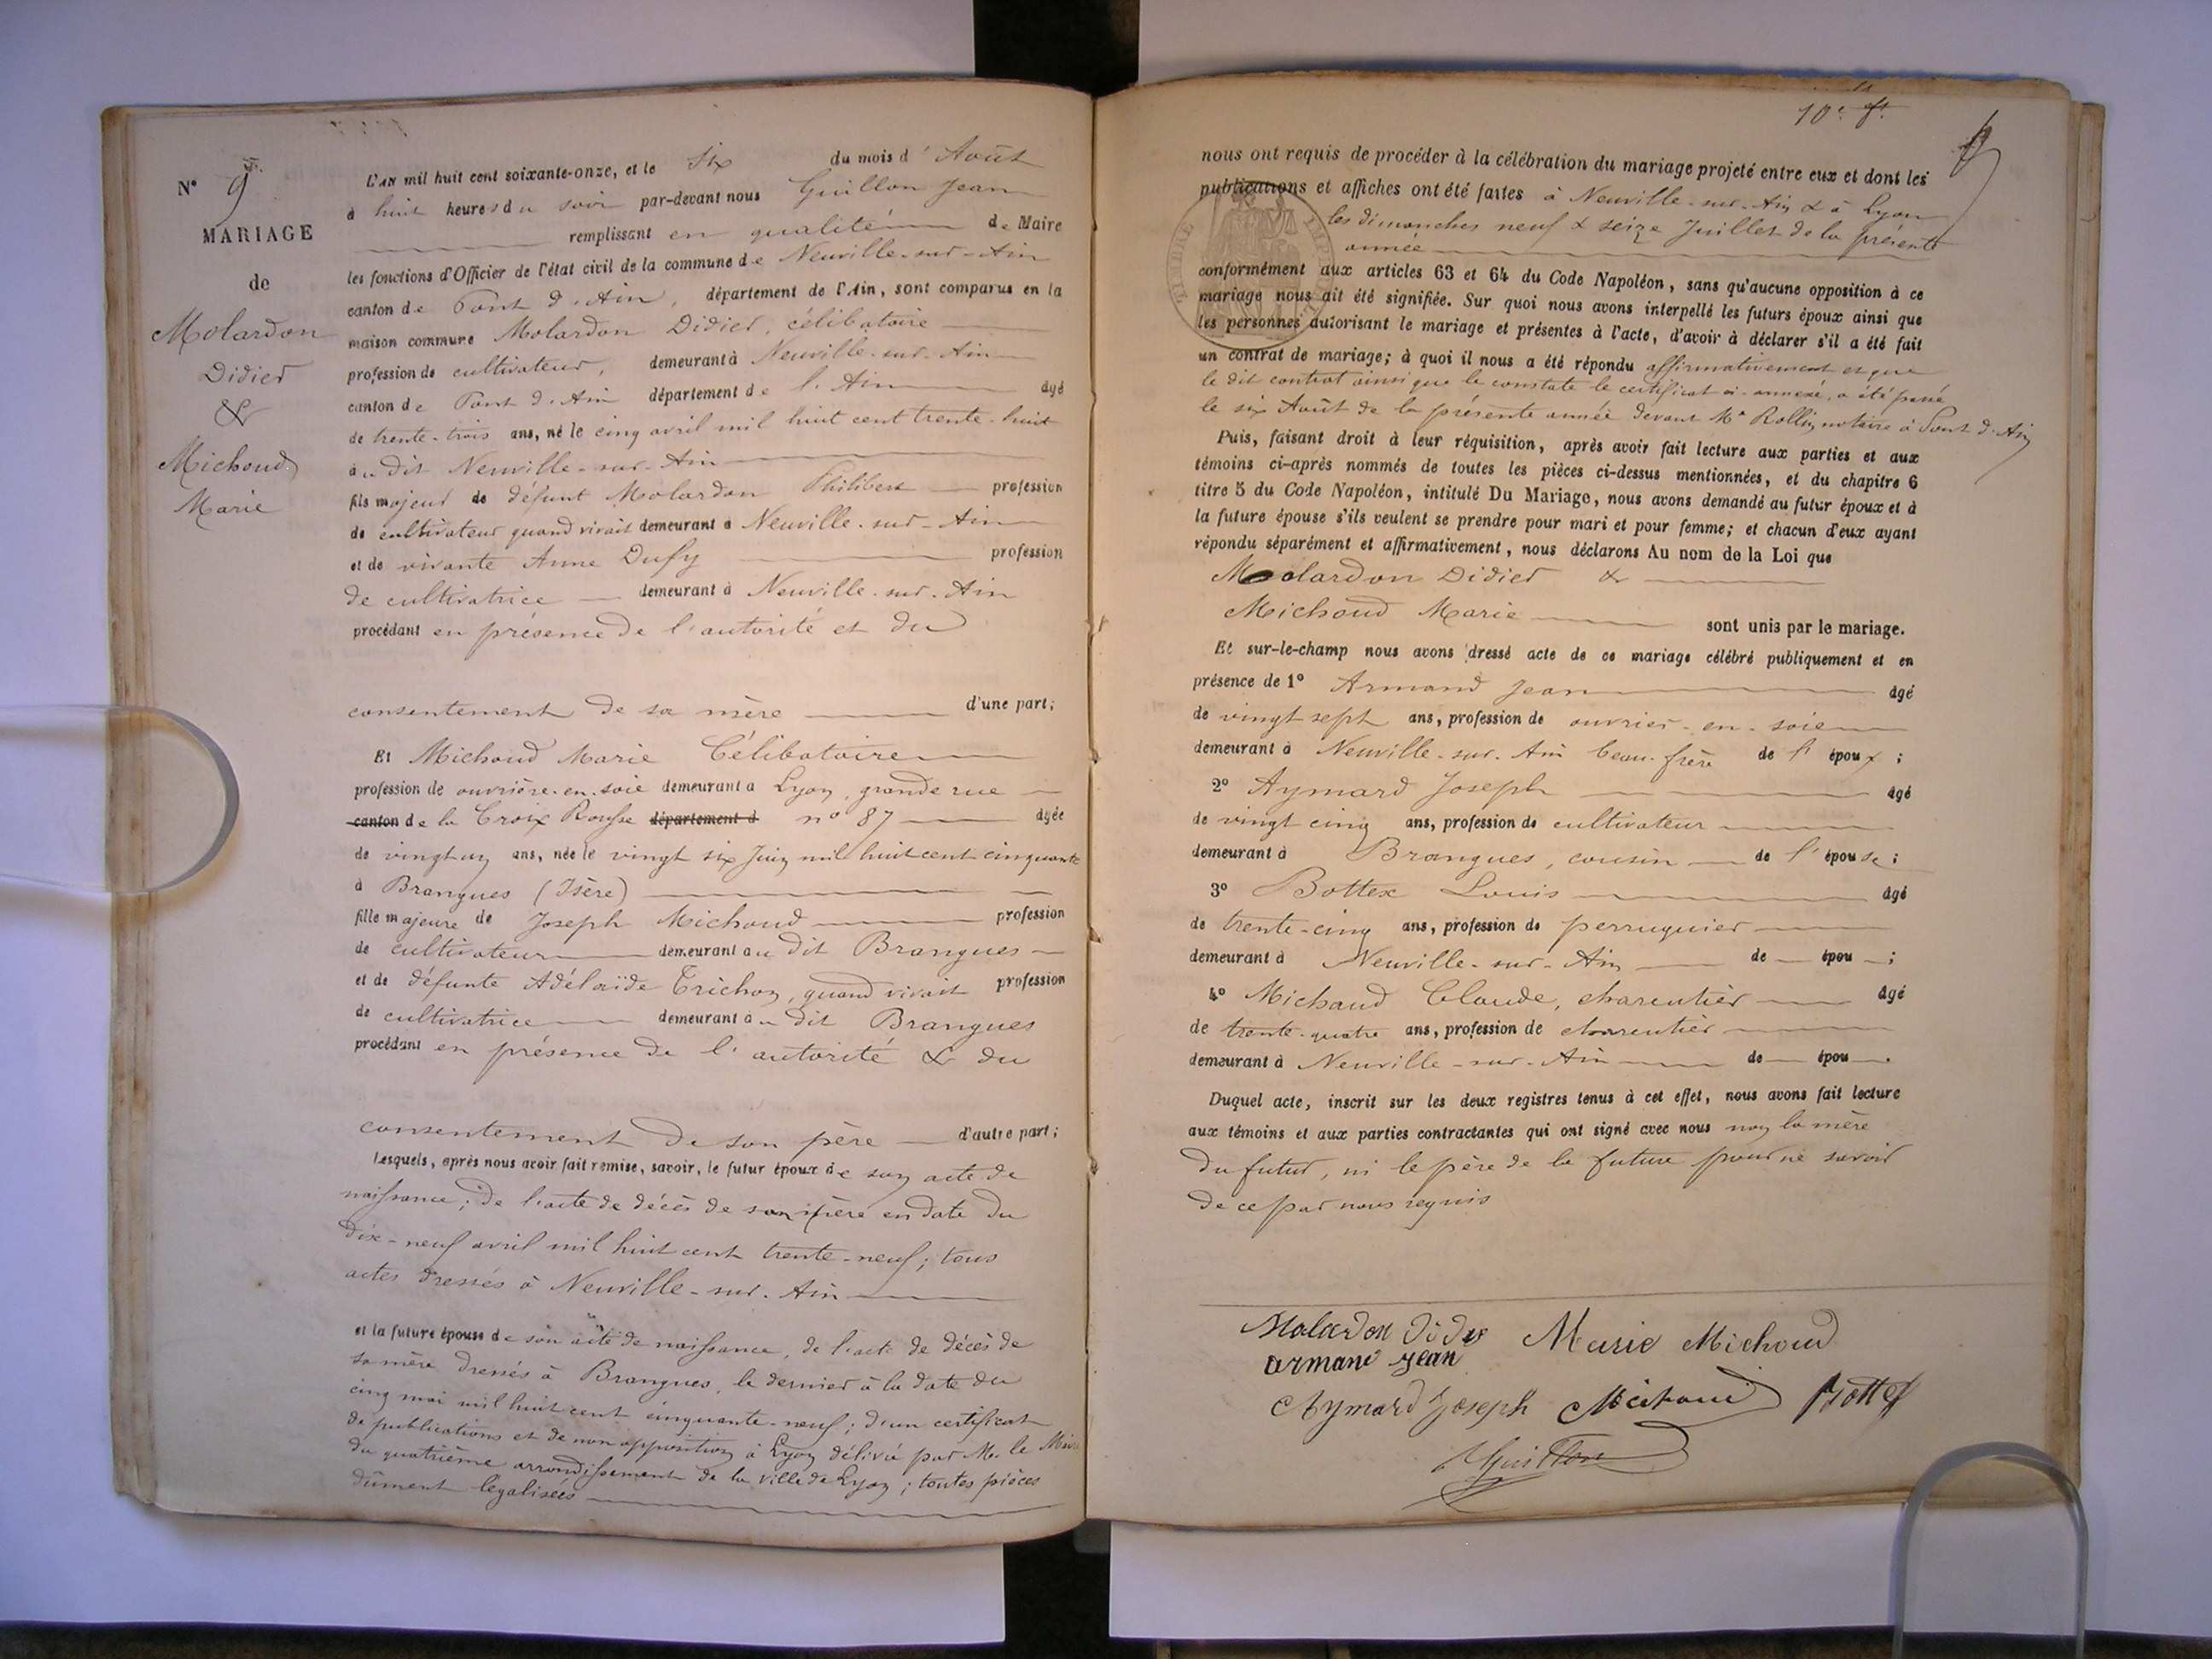 N° 9
MARIAGE
de
Molardon
Didier
&
Michoud
Marie
L'AN mil huit cent soixante-onze, et le six du mois d'Août
à huit heures du soir par-devant nous Guillon Jean
remplissant en qualité de Maire
les fonctions d'Officier de l'état civil de la commune de Neuville-sur-Ain
canton de Pont d'Ain, département de l'Ain, sont comparus en la
maison commune Molardon Didier, célibataire
profession de cultivateur, demeurant à Neuville-sur-Ain
canton de Pont d'Ain département de l'Ain âgé
de trente-trois ans, né le cinq avril mil huit cent trente-huit
au dit Neuville-sur-Ain
fils majeur de défunt Molardon Philibert profession
de cultivateur quand vivait demeurant à Neuville-sur-Ain
et de vivante Anne Dufy profession
de cultivatrice demeurant à Neuville-sur-Ain
procédant en présence de l'autorité et du
consentement de sa mère d'une part;
Et Michoud Marie Célibataire
profession de ouvrière-en-soie demeurant a Lyon, grande rue
canton de la Croix Rousse département d n° 87 âgée
de vingt un ans, née le vingt six Juin mil huit cent cinquante
à Brangues (Isère)
fille majeure de Joseph Michoud profession
de cultivateur demeurant au dit Brangues
et de défunte Adélaïde Trichon, quand vivait profession
de cultivatrice demeurant au dit Brangues
procédant en présence de l'autorité & du
consentement de son père d'autre part;
Lesquels, après nous avoir fait remise, savoir, le futur époux de son acte de
naissance; de l'acte de décès de son père en date du
dix-neuf avril mil huit cent trente-neuf; tous
actes dressés à Neuville-sur-Ain
et la future épouse de son acte de naissance, de l'acte de décès de
sa mère dressés à Brangues, le dernier à la date du
cinq mai mil huit cent cinquante-neuf; d'un certificat
de publications et de non opposition à Lyon délivré par Mr. le Maire
du quatrième arrondissement de la ville de Lyon; toutes pièces
dûment légalisées
10e ft.
nous ont requis de procéder à la célébration du mariage projeté entre eux et dont les
publications et affiches ont été faites à Neuville-sur-Ain & à Lyon
les dimanches neuf & seize Juillet de la présente
année
TIMBRE IMPERIAL
conformément aux articles 63 et 64 du Code Napoléon, sans qu'aucune opposition à ce
mariage nous ait été signifiée. Sur quoi nous avons interpellé les futurs époux ainsi que
les personnes autorisant le mariage et présentes à l'acte, d'avoir à déclarer s'il a été fait
un contrat de mariage; à quoi il nous a été répondu affirmativement et que
le dit contrat ainsi que le constate le certificat ci-annexé, a été passé
le six Août de la présente année devant Me Rollin notaire à Pont d'Ain
Puis, faisant droit à leur réquisition, après avoir fait lecture aux parties et aux
témoins ci-après nommés de toutes les pièces ci-dessus mentionnées, et du chapitre 6
titre 5 du Code Napoléon, intitulé Du Mariage, nous avons demandé au futur époux et à
la future épouse s'ils veulent se prendre pour mari et pour femme; et chacun d'eux ayant
répondu séparément et affirmativement, nous déclarons Au nom de la Loi que
Molardon Didier &
Michoud Marie sont unis par le mariage.
Et sur-le-champ nous avons dressé acte de ce mariage célébré publiquement et en
présence de 1° Armand Jean âgé
de vingt sept ans, profession de ouvrier-en-soie
demeurant à Neuville-sur-Ain beau-frère de l'époux;
2° Aymard Joseph âgé
de vingt cinq ans, profession de cultivateur
demeurant à Brangues, cousin de l'épouse;
3° Bottex Louis âgé
de trente-cinq ans, profession de perruquier
demeurant à Neuville-sur-Ain de épou ;
4° Michaud Claude, charcutier âgé
de trente-quatre ans, profession de charcutier
demeurant à Neuville-sur-Ain de épou .
Duquel acte, inscrit sur les deux registres tenus à cet effet, nous avons fait lecture
aux témoins et aux parties contractantes qui ont signé avec nous non la mère
du futur, ni le père de la future pour ne savoir
de ce par nous requis
Molardon Didier Marie Michoud
armand jean
Aymard Joseph Michaud Bottex
Guillon